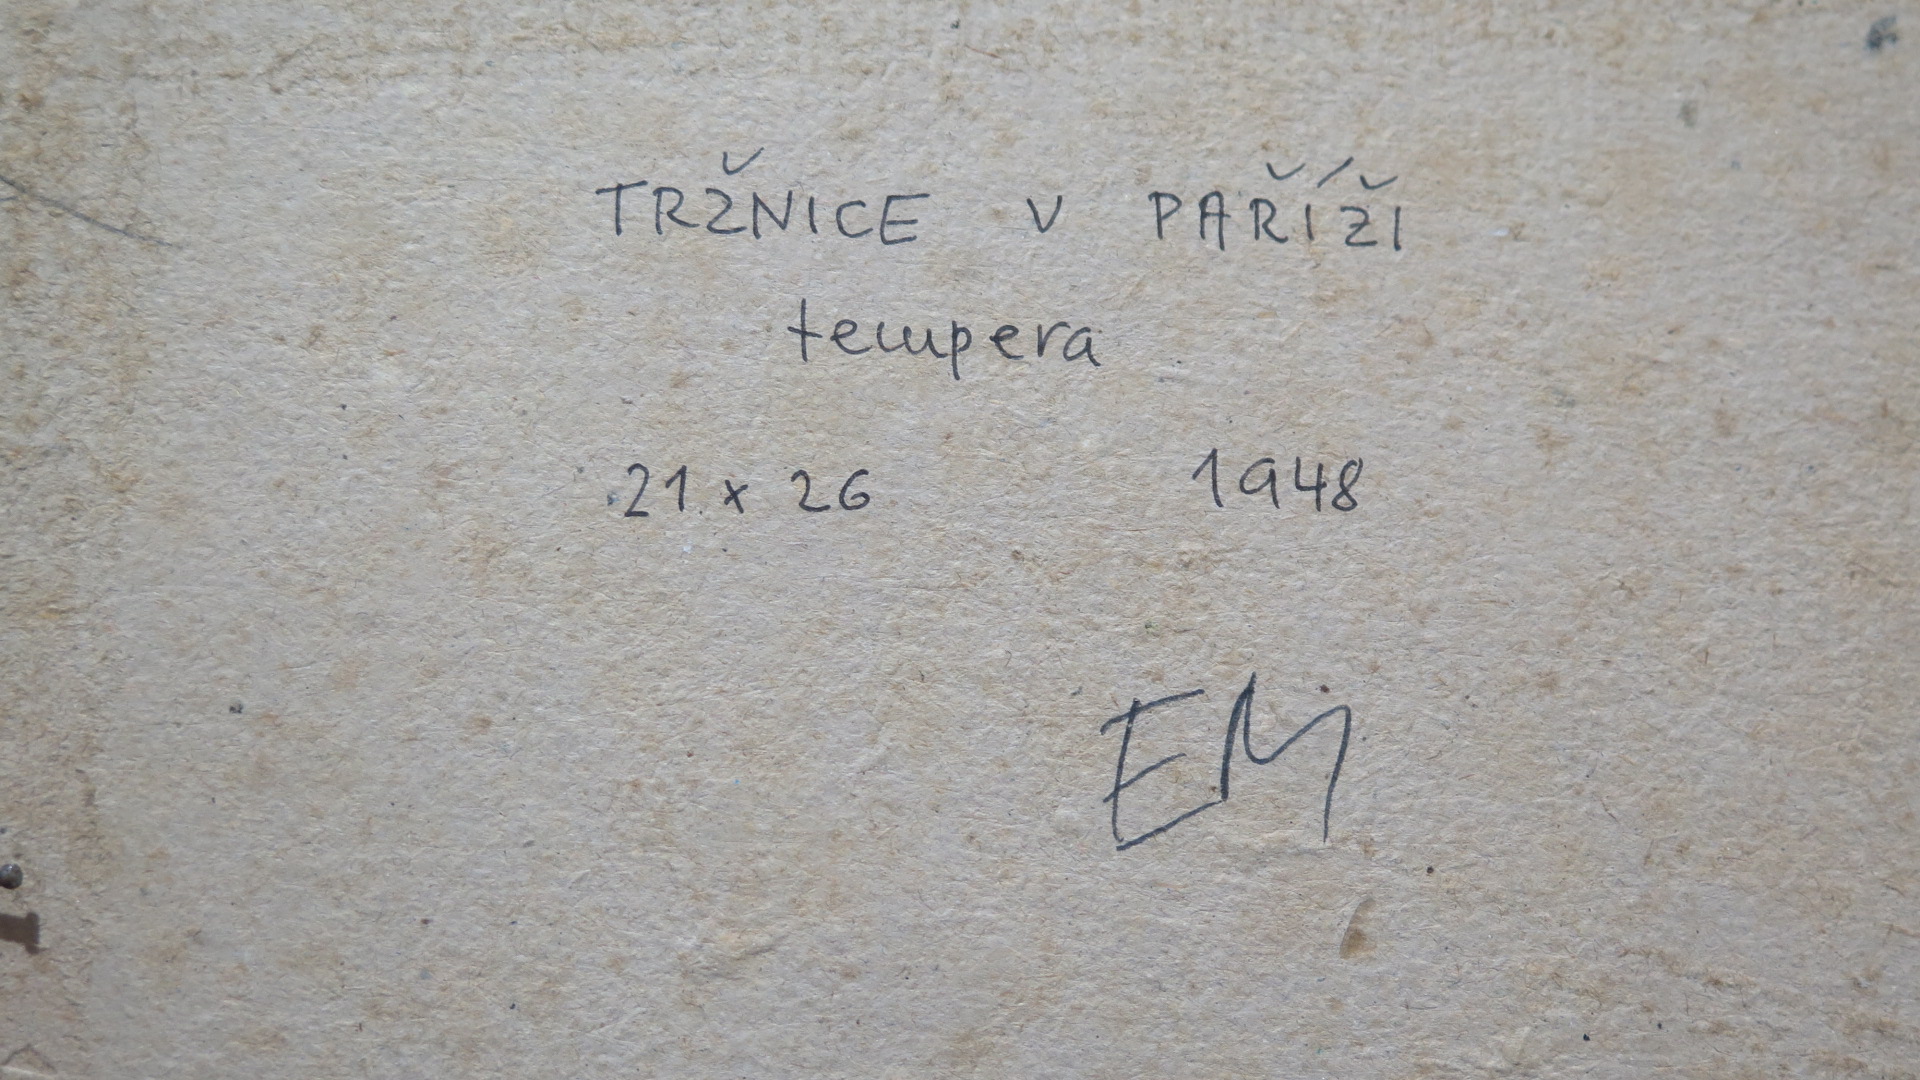 TRŽNICE V PAŘÍŽI
tempera
21 x 26 1948
EM